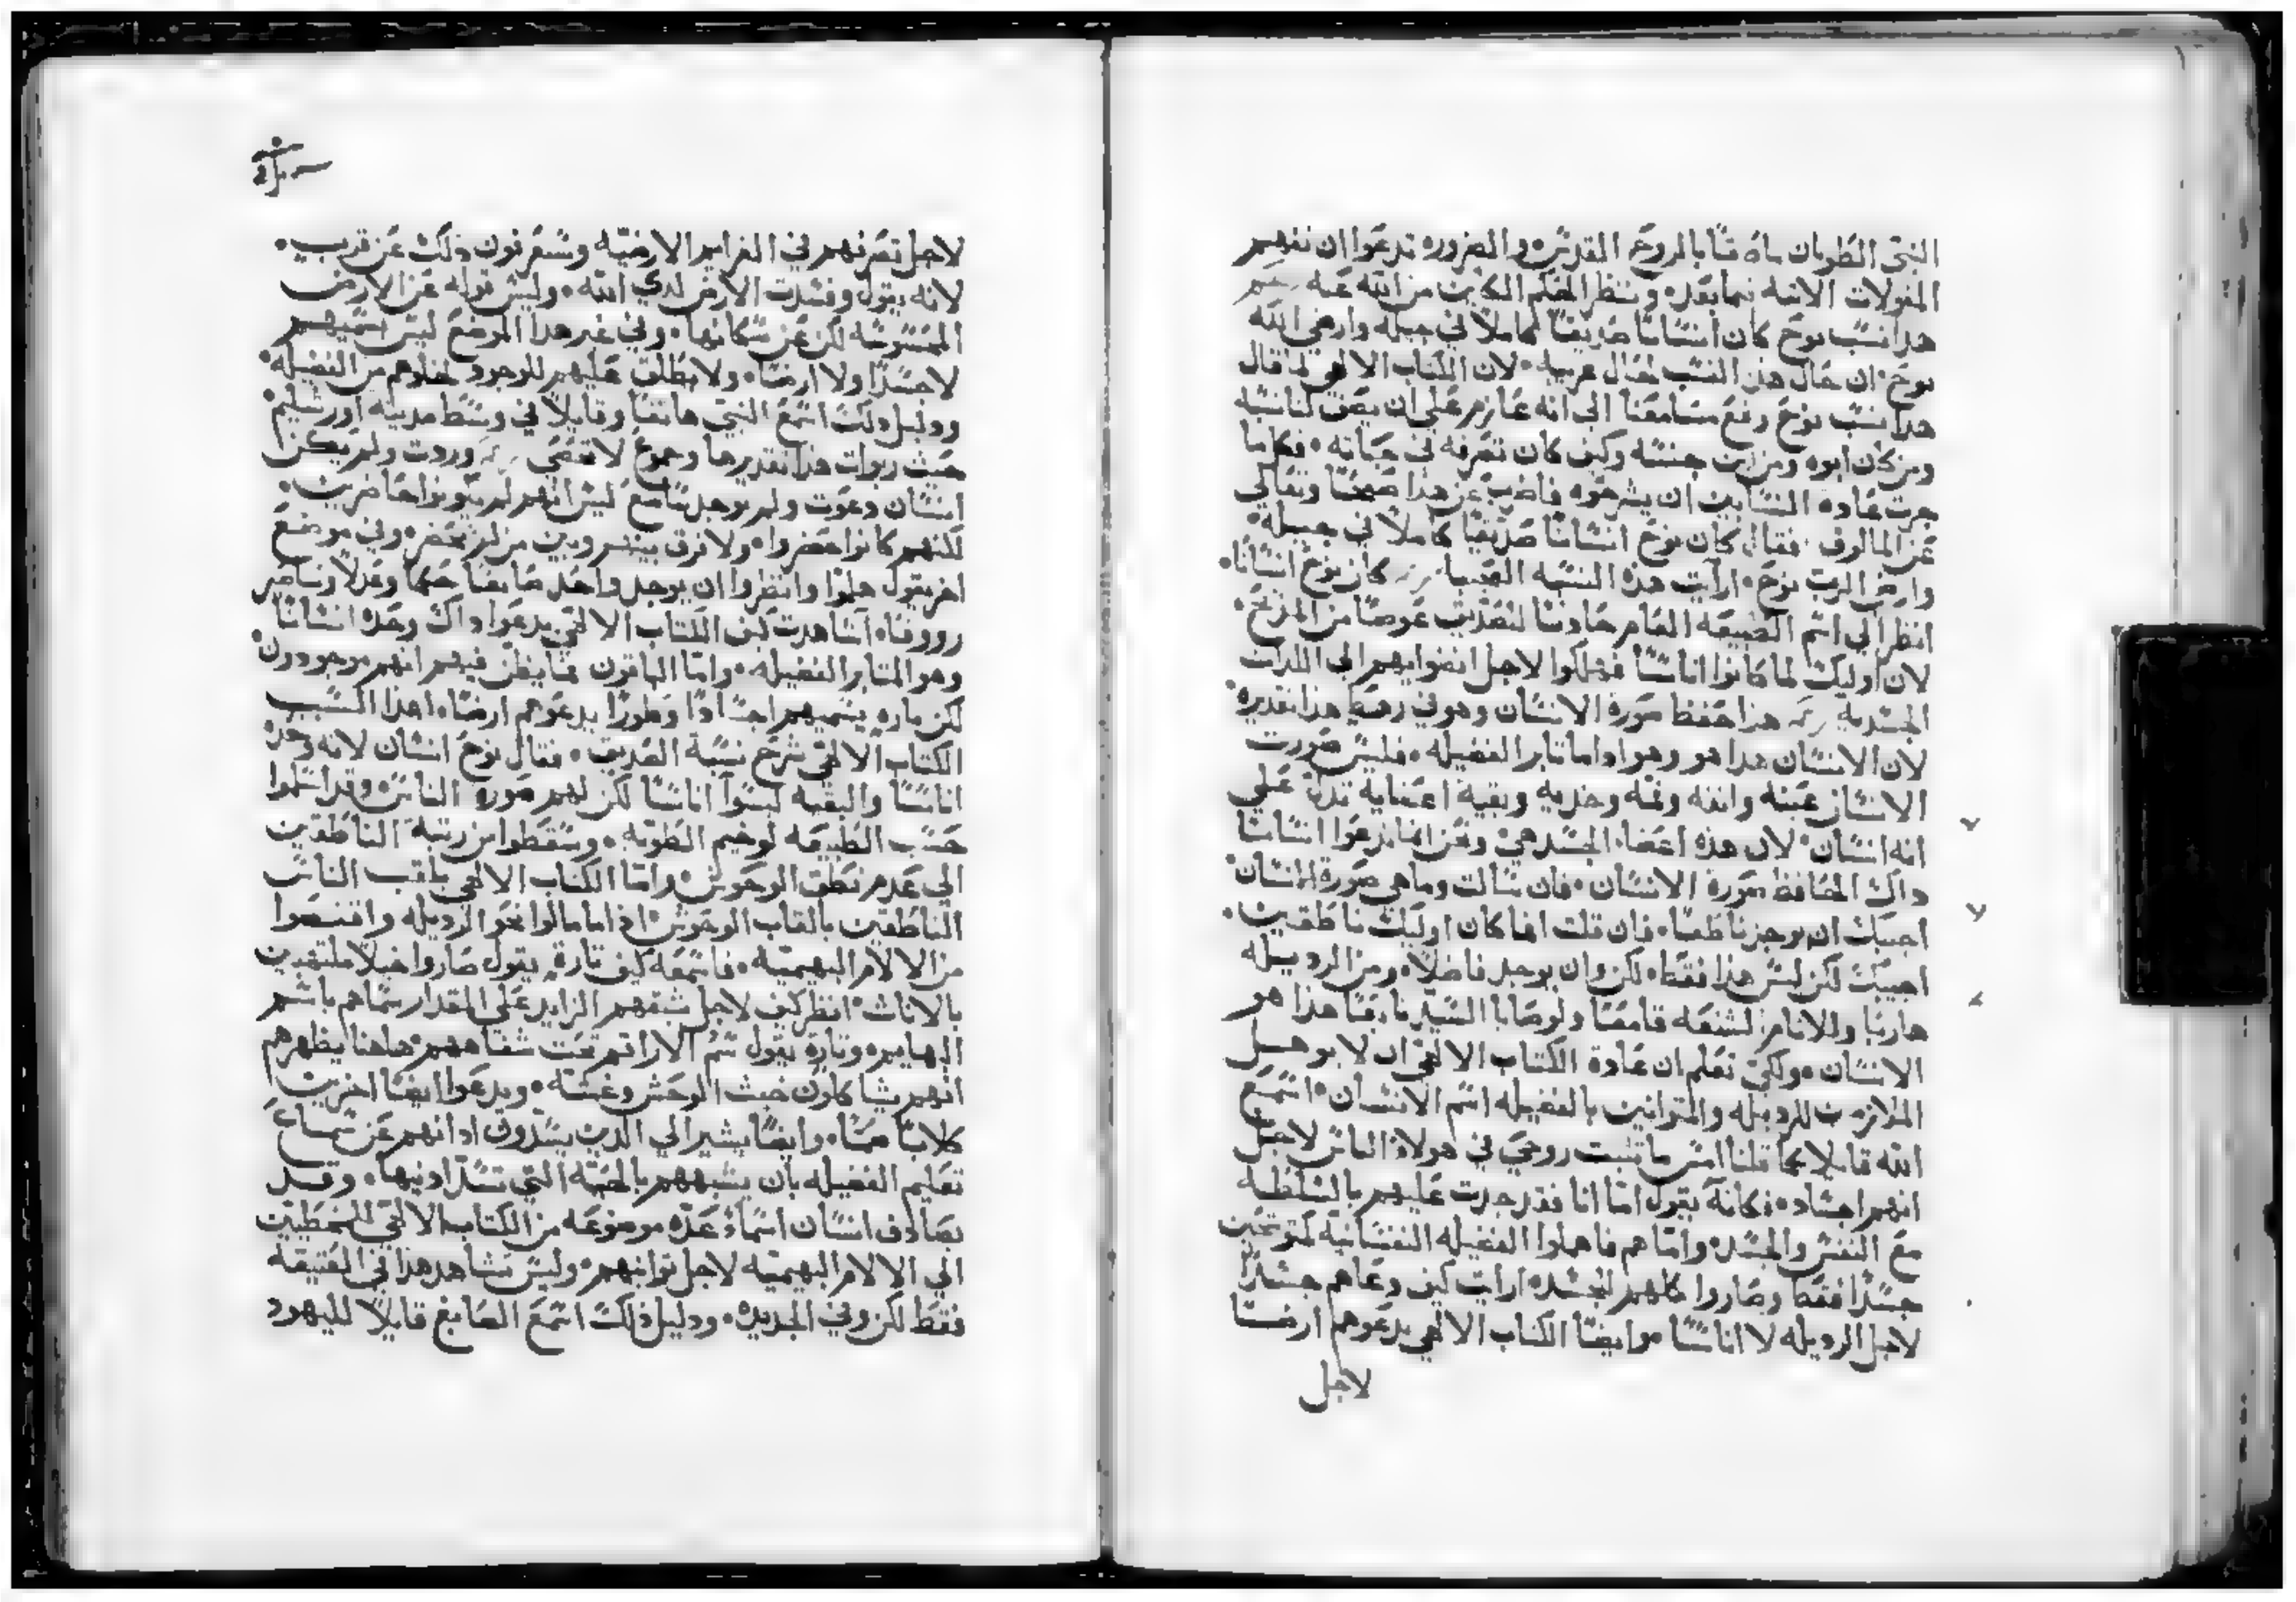 النبي الطوبان ماه قتا بالروح المقدس والضروره تدعوا ان نفهم
المقولات الاتيه فيما بعد وننظر المعلم الكاين من الله عنه
هدا نسب نوح كان انسانا صديقا كاملا في جيله وارضي الله
نوح ان حال هذا النسب لحال غريبه لان الكتاب الالهي لما قال
هدا نسب نوح رفع مسامعنا الي انه عازم علي ان يصف لنا نسبه
ومن كان ابوه ومن اين جنسه وكيف كان تصرفه في حياته فكلما
جرت عاده النسابين ان يشرحوه فاضرب عن هذا صفحا وتعالي
عن المالوف فقال كان نوح انسانا صديقا كاملا في جيله
وارضي الرب نوح ارايت هذه النسبه العجيبه كان نوح انسانا
انظر الي اسم الطبيعه العام حادثا للصديق عوضا من المديح
لان اوليك لما كانوا اناسا فهلكوا لاجل انضوايهم الي اللذات
الجسديه هذا حفظ صورة الانسان وهو في رهط هذا تقديره
لان الانسان هدا هو وهو اداما تابر الفضيله فليس صورت
الانسان عينه وانفه وفمه وخديه وبقية اعضايه تدل علي
انه انسان لان هذه اعضا الجسد هي ونحن انما ندعوا انسانا
داك الحافظ صورة الانسان فان سالت وما هي صورة الانسان
اجيبك ان يوجد ناطقا فان قلت افما كان اوليك ناطقين
اجيبك لكن ليس هذا فقط لكن وان يوجد فاضلا ومن الرديله
هاربا وللالام الشنعه قامعا ولوصايا السيد تابعا هذا هو
الانسان ولكي تعلم ان عادة الكتاب الالهي ان لا يوهل
الملازمين للرديله والمتوانين بالفضيله اسم الانسان استمع
الله قايلا كما قلنا امس ما تثبت روحي في هولاء الناس لاجل
انهم اجساد فكانه يقول اما انا فقد جدت عليهم بالسلطه
مع النفس والجسد واما هم فاهملوا الفضيله النفسانيه كمتوشحين
جسدا فقط وصاروا كلهم لجسد ارايت كيف دعاهم جسدا
لاجل الرديله لا اناسا وايضا الكتاب الالهي يدعوهم ارضا
لاجل
لاجل تصرفهم في الغرايم الارضيه وستعرفون ذلك عن قريب
لانه يقول وفسدت الارض لدي الله وليس قوله عن الارض
المحسوسه لكن عن سكانها وفي غير هدا الموضع ليس اسميهم
لا جسدا ولا ارضا ولا يطلق عليهم للوجود لخلوهم من الفضيله
ودليل ذلك استمع النبي هاتفا وقايلا في وسط مدينه اورشليم
حيث ربوات هذا تقديرها وجموع لا تحصي وردت ولم يكن
انسان دعوت ولم يوجد سامع ليس انهم لم يكونوا حاضرين
لكنهم كانوا حضروا ولا فرق بينهم وبين من لم يحضر وفي موضع
اخر يقول هلموا وانظروا ان يوجد واحد صانعا حكما وعدلا وناصر
رووفاه اشاهدت كيف الكتاب الالهي يدعوا داك وحده انسانا
وهو المتابر الفضيله واما الباقون فما يظن فيهم انهم موجودون
لكن تاره يسميهم اجسادا وطورا يدعوهم ارضا لهذا السبب
الكتاب الالهي شرح نسبة الصديق فقال نوح انسان لانه وحده
انسانا والبقيه ليسوا اناسا لكن لهم صورة الناس وقد استلموا
حسب الطبيعه لوخيم الطويه وسقطوا من رتبة الناطقين
الي عدم نطق الوحوش واما الكتاب الالهي يلقب الناس
الناطقين بالقاب الوحوش اذاما مالوا نحو الرديله واقتنصوا
من الالام البهيميه فاسمعه كيف تارة يقول صاروا خيلا ملتهبين
بالاناث انظر كيف لاجل شبقهم الزايد علي المقدار سماهم باسم
البهايم وتارة يقول سم الاراقم تحت شفاههم هاهنا يظهرهم
انهم يشاكلون خبث الوحش وغشه ويدعوا ايضا اخرين
كلابا خرسا وايضا يشير الي الدين يسدون ادانهم عن سماع
تعليم الفضيله بان يشبههم بالحيه التي تسد ادنيها وقد
يصادف انسان اسماء عده موضوعه من الكتاب الالهي للخطيين
الي الالام البهيميه لاجل توانيهم وليس نشاهد هذا في العتيقه
فقط لكن وفي الجديده ودليل ذلك استمع الصابغ قايلا لليهود